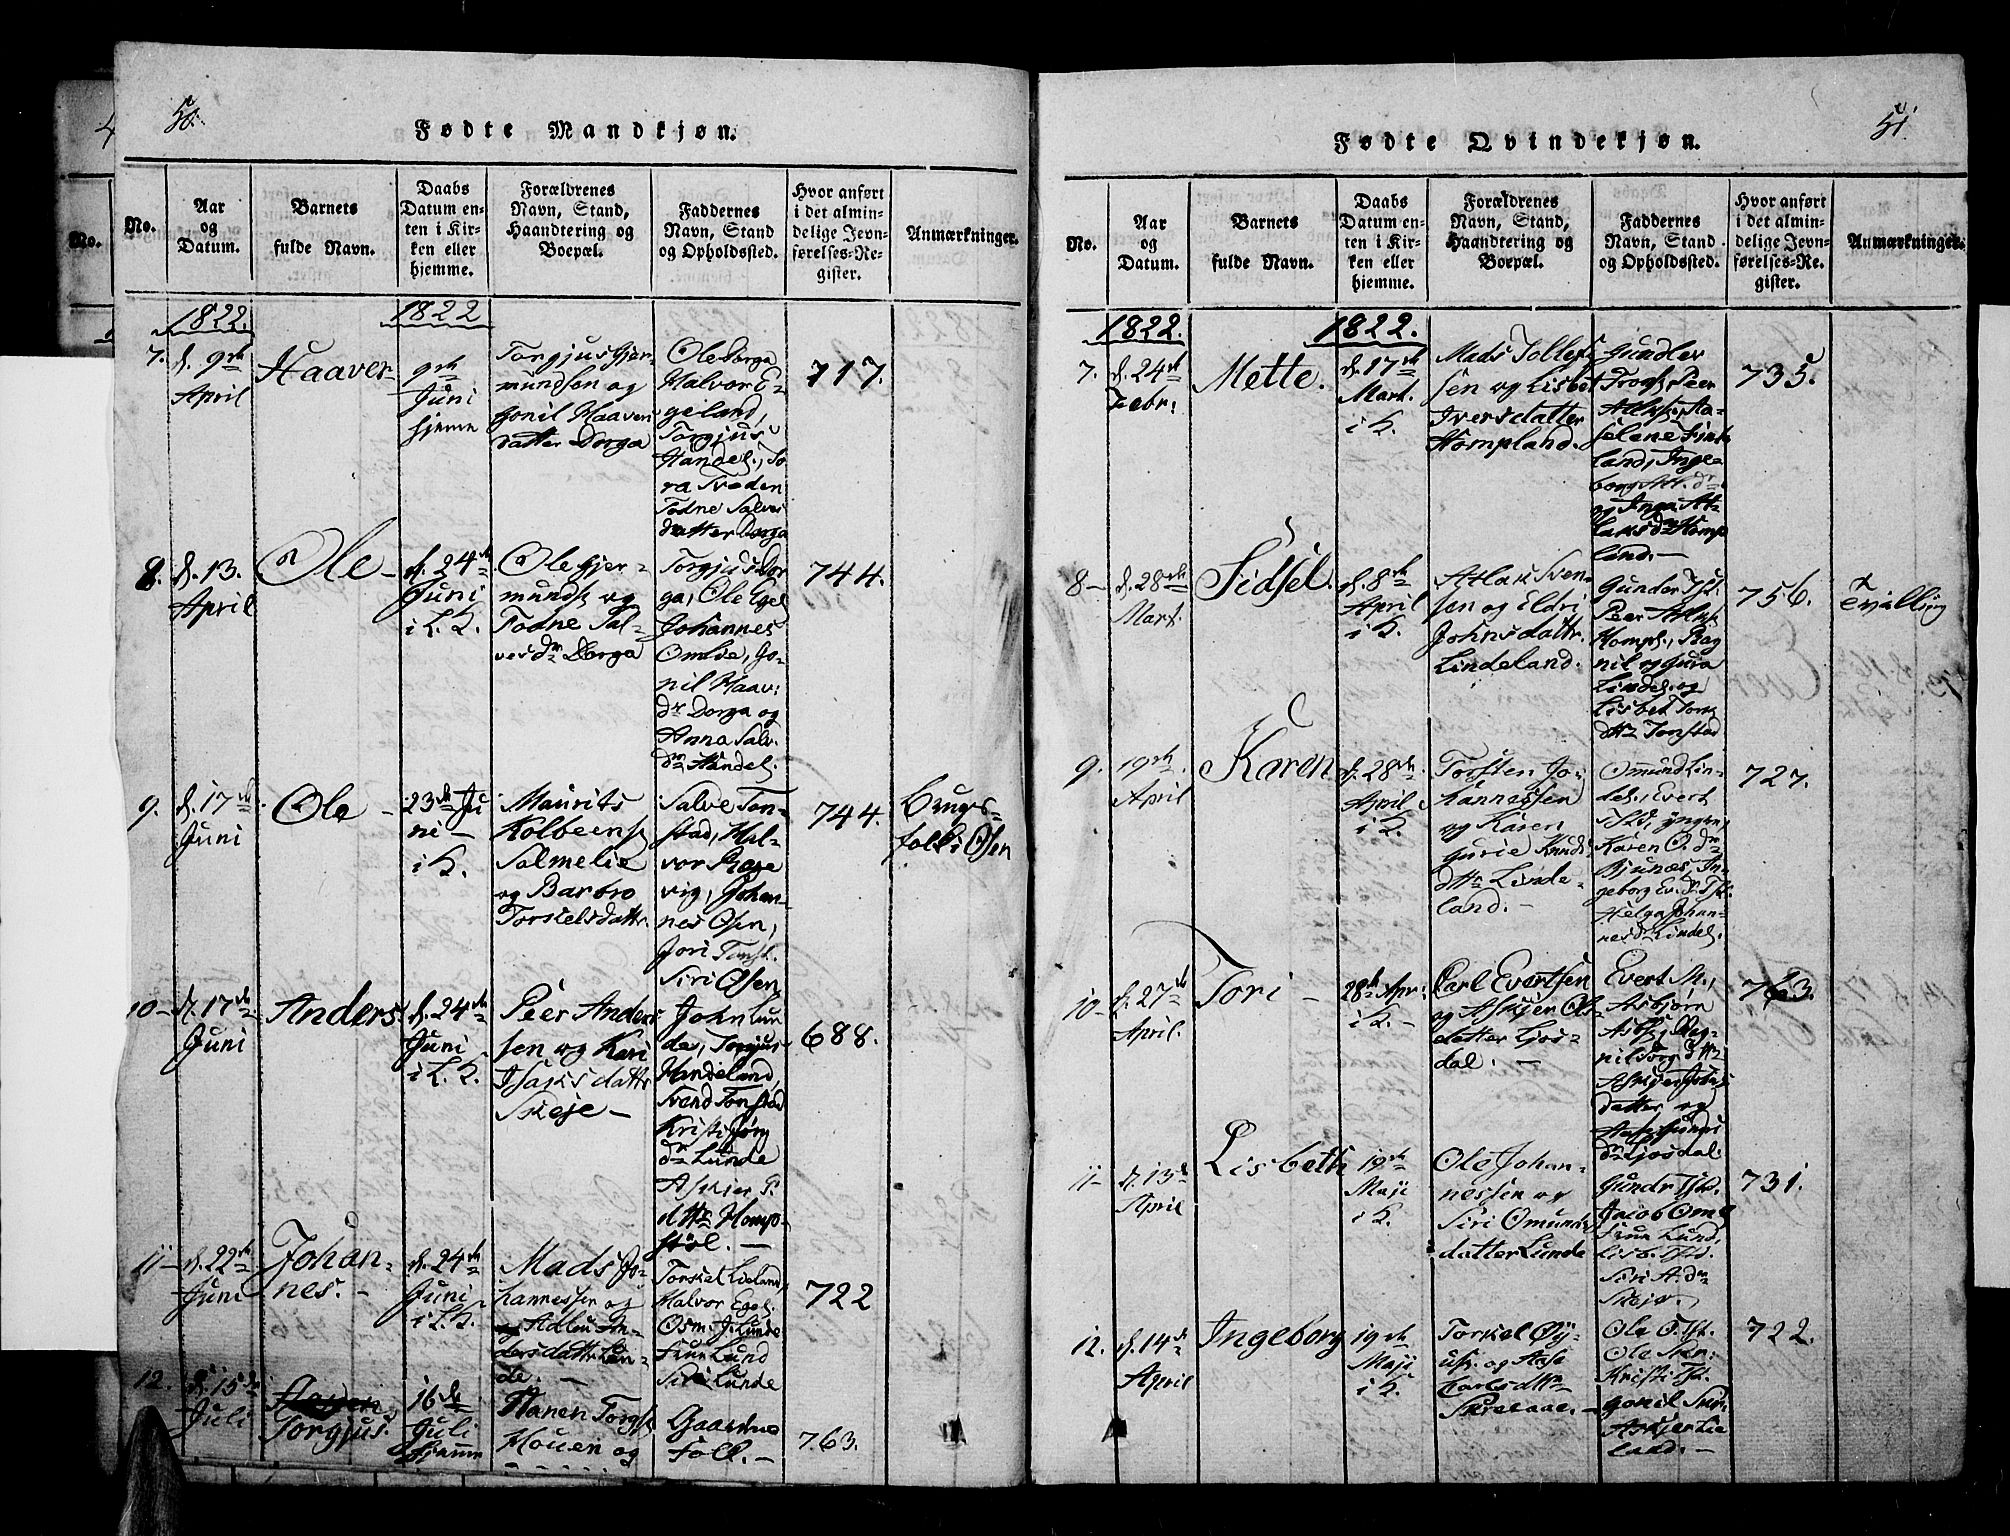 50.
Fødte Mandkjøn.
No.
Aar
og
Datum.
Barnets
fulde Navn.
Daabs
Datum en-
ten i Kir-
ken eller
hjemme.
Forældrenes
Navn, Stand,
Haandtering og
Boepæl.
Faddernes
Navn, Stand
og Opholdssted.
Hvor anført
i det almin-
delige Jevn-
førelses-Re-
gister.
Anmærkninger.
1822.
1822
7.
d. 9de
April
Haaver
9de
Juni
hjeme
Torgjus Gjer-
mundsen og
Gonil Haavers
datter Dorga
Ole Dorga
Halvor E-
geland,
Torgjus
Handel., To
ra Svoden
Todne Salves
datter Dorga
717.
8.
d. 13.
April
Ole
d. 24de
Juni
i L. K.
Ole Gjer-
munds. og
Todne Sal-
vesdr Dorga
Torgjus Dor
ga, Ole Egel
Johannes
Omlie, Go-
nil Haav:
dr Dorga og
Anna Salv.
dr Handel.
744.
9.
d. 17de
Juni
Ole
23de Ju
ni
i K.
Maurits
Kolbeens.
Salmelie
og Barbro
Torkelsdattr.
Salve Ton-
stad, Hal-
vor Rage
vig, Johan-
nes Osen,
Jori Tonst.
Siri Osen
744.
Brugs-
folk i Osen
10
d. 17de
Juni
Anders
d. 24de
Juni
i L. K.
Peer Anders
sen og Kari
Isaksdattr
Skeje
John Lun
de, Torgjus
Handeland,
Svend Tonstad
Kristi Jørg
dr Lunde
Askier P.
dttr Homp-
støl.
688.
11
d. 22de
Juni
Johan-
nes.
d. 24de
Juni
i L. K.
Mads Jo-
hannessen og
Adlou An-
dersdattr Lun-
de.
Torkel Lieland,
Halvor Egel.
Osm. J. Lunde
Lund
Siri Lunde
722
12.
d. 15de
Juli
Torgjus.
16de
Juli
hjemme
Hanen Torgs.
Houen og
Gaardens
Folk.
763.
51.
Fødte Qvindekjøn.
No.
Aar
og
Datum.
Barnets
fulde Navn.
Daabs
Datum en-
ten i Kir-
ken eller
hjemme.
Forældrenes
Navn, Stand,
Haandtering og
Boepæl.
Faddernes
Navn, Stand
og Opholdssted.
Hvor anført
i det almin-
delige Jevn-
førelses-Re-
gister.
Anmærkninger.
1822.
1822.
7.
d. 24de
Febr:
Mette.
d. 17de
Mart.
i K.
Mads Tollefs
sen og Lisbet
Iversdatter
Hompland.
Peer
land, Inge-
borg Atl. dr
og Inga At-
laksdr Homp
land.
735.
8
d. 28de
Mart.
Sidsel.
d. 8de
April
i K.
Atlak Sven-
sen og Eldri
Johnsdattr.
Lindeland.
Gunder Tst.
Peer Atlks.
Homp., Rag
nil og Gura
Lindel. og
Lisbet Tons
dttr Tonstad
756.
Tvilling
9.
19de
April
Karen
d. 28de
April
i K.
Torsten Jo-
hannessen
og Karen
Gurie Knuds-
dttr Linde-
land.
Omund Lin-
del., Evert
Tstd, yngre,
Karen O. dr
Bjunes, In-
geborg Ev. dr Tst.
Helga Johan-
nesdr Lindel.
727.
10
d. 27de
April.
Tori
28de Apr:
i K.
Carl Evertsen
og Askjer Ols
datter Ljos-
dal.
Evert M.,
Asbjørn
Asbj., Rag-
nil
Askjer
datter og
Aase Gunni
dr Ljosdal.
763.
11
d. 13de
April
Lisbeth
19de
Maji
i K.
Ole Johan-
nessen og
Siri Omunds
datter Lunde
Gundr Tst.
Jacob Oml.
Lund,
Lisb. Tstd.
Siri A. dr
Skeje.
731.
12.
d. 14de
April
Ingeborg
19de
Maji
i K.
Torkel Øy-
us. og Aase
Carlsdttr
Skreaae.
Ole O. Tst.
Ole
Kristi Tst.
Gonil
Askjer Lie
land.
722.